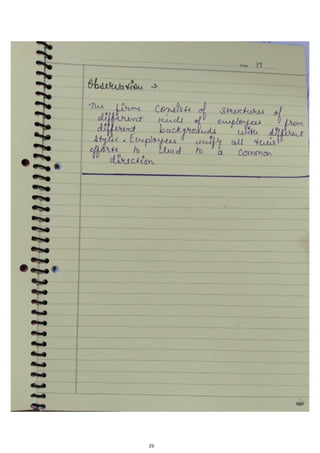 Date 17
Observation →
The firm consists of structures of
different kinds of employees from
different backgrounds with different
style. Employees unify all their
efforts to lead to a common
direction
29